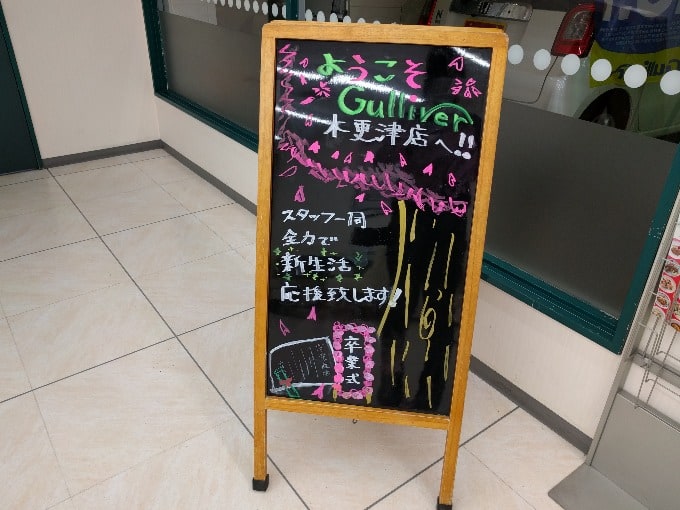 ようこそ
Gulliver
木更津店へ!!
スタッフ一同
全力で
新生活
応援致します!
卒業式